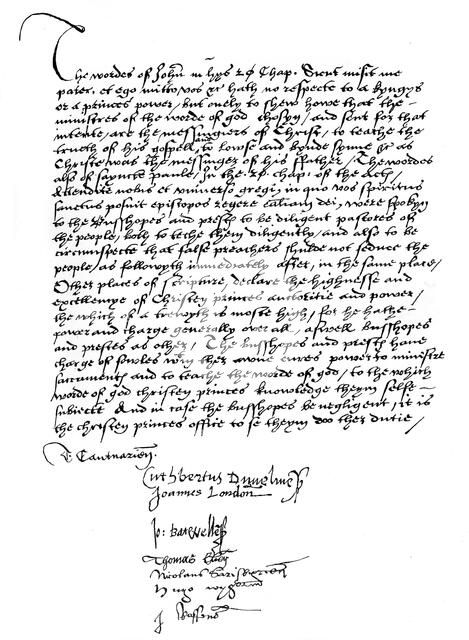 The wordes of John in hys 20 Chap. Sicut misit me
pater, et ego mitto vos &c hath no respecte to a kyngys
or a princes power, but onely to shew howe that the
ministres of the worde of god chosyn and sent for that
intente, are the messangiers of Christ, to teache the
trueth of his gospell, to lowse and bynde synne &c as
Christe was the messanger of his ffather. The wordes
also of saynete paule, in the 20 chap. of the act,
Attendite vobis et universo gregi, in quo vos spiritus
sanctus posuit episcopos regere ecclesiam dei, were spokyn
to the Busshopes and prestys to be diligent pastores of
the people, both to teche them diligently, and also to be
circumspecte that false preachers shulde not seduce the
people, as followyth immediately after, in the same place,
Other places of scripture, declare the highnesse and
excellencye of Christen princes authoritie and power,
the which of a trewyth is moste high, for he hathe
power and charge generally over all, aswell Busshopes
and prestes as other, The busshopes and prestys have
charge of sowles wyth ther awne cures power to ministre
sacraments and to teache the worde of god, to the which
worde of god christen princes knowledge theym selfe
subiecte And in case the busshopes be negligent, it is
the christen princes office to se theym doo ther dutie,
T. Cantuarien.
Cuthbertus Dunelmen
Joannes London
Jo: Batwellen
Thomas Elien
Nicolaus Sarisburien
Hugo wygorn
J Roffens